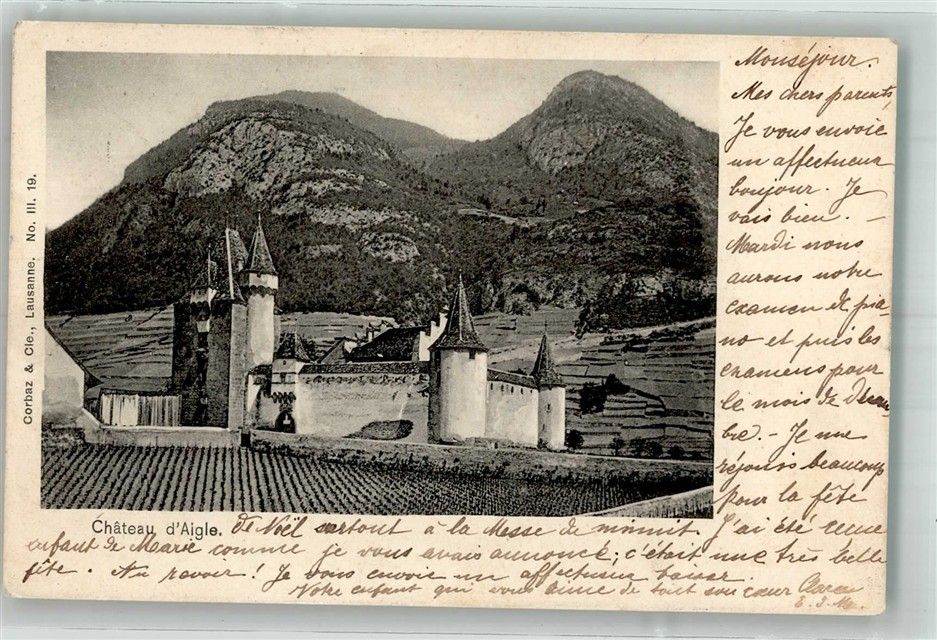 Corbaz & Cie., Lausanne. No. III. 19.
Monséjour.
Mes chers parents,
Je vous envoie
un affectueux
bonjour. Je
vais bien. –
Mardi nous
aurons notre
examen de pia-
no et puis les
examens pour
le mois de Décem
bre. – Je me
réjouis beaucoup
pour la fête
Château d'Aigle.
de Noël surtout à la Messe de minuit. J'ai été reçue
enfant de Marie comme je vous avais annoncé; c'était une très belle
fête. Au revoir! Je vous envoie un affectueux baiser.
Votre enfant qui vous aime de tout son cœur Clara
E. J. M.